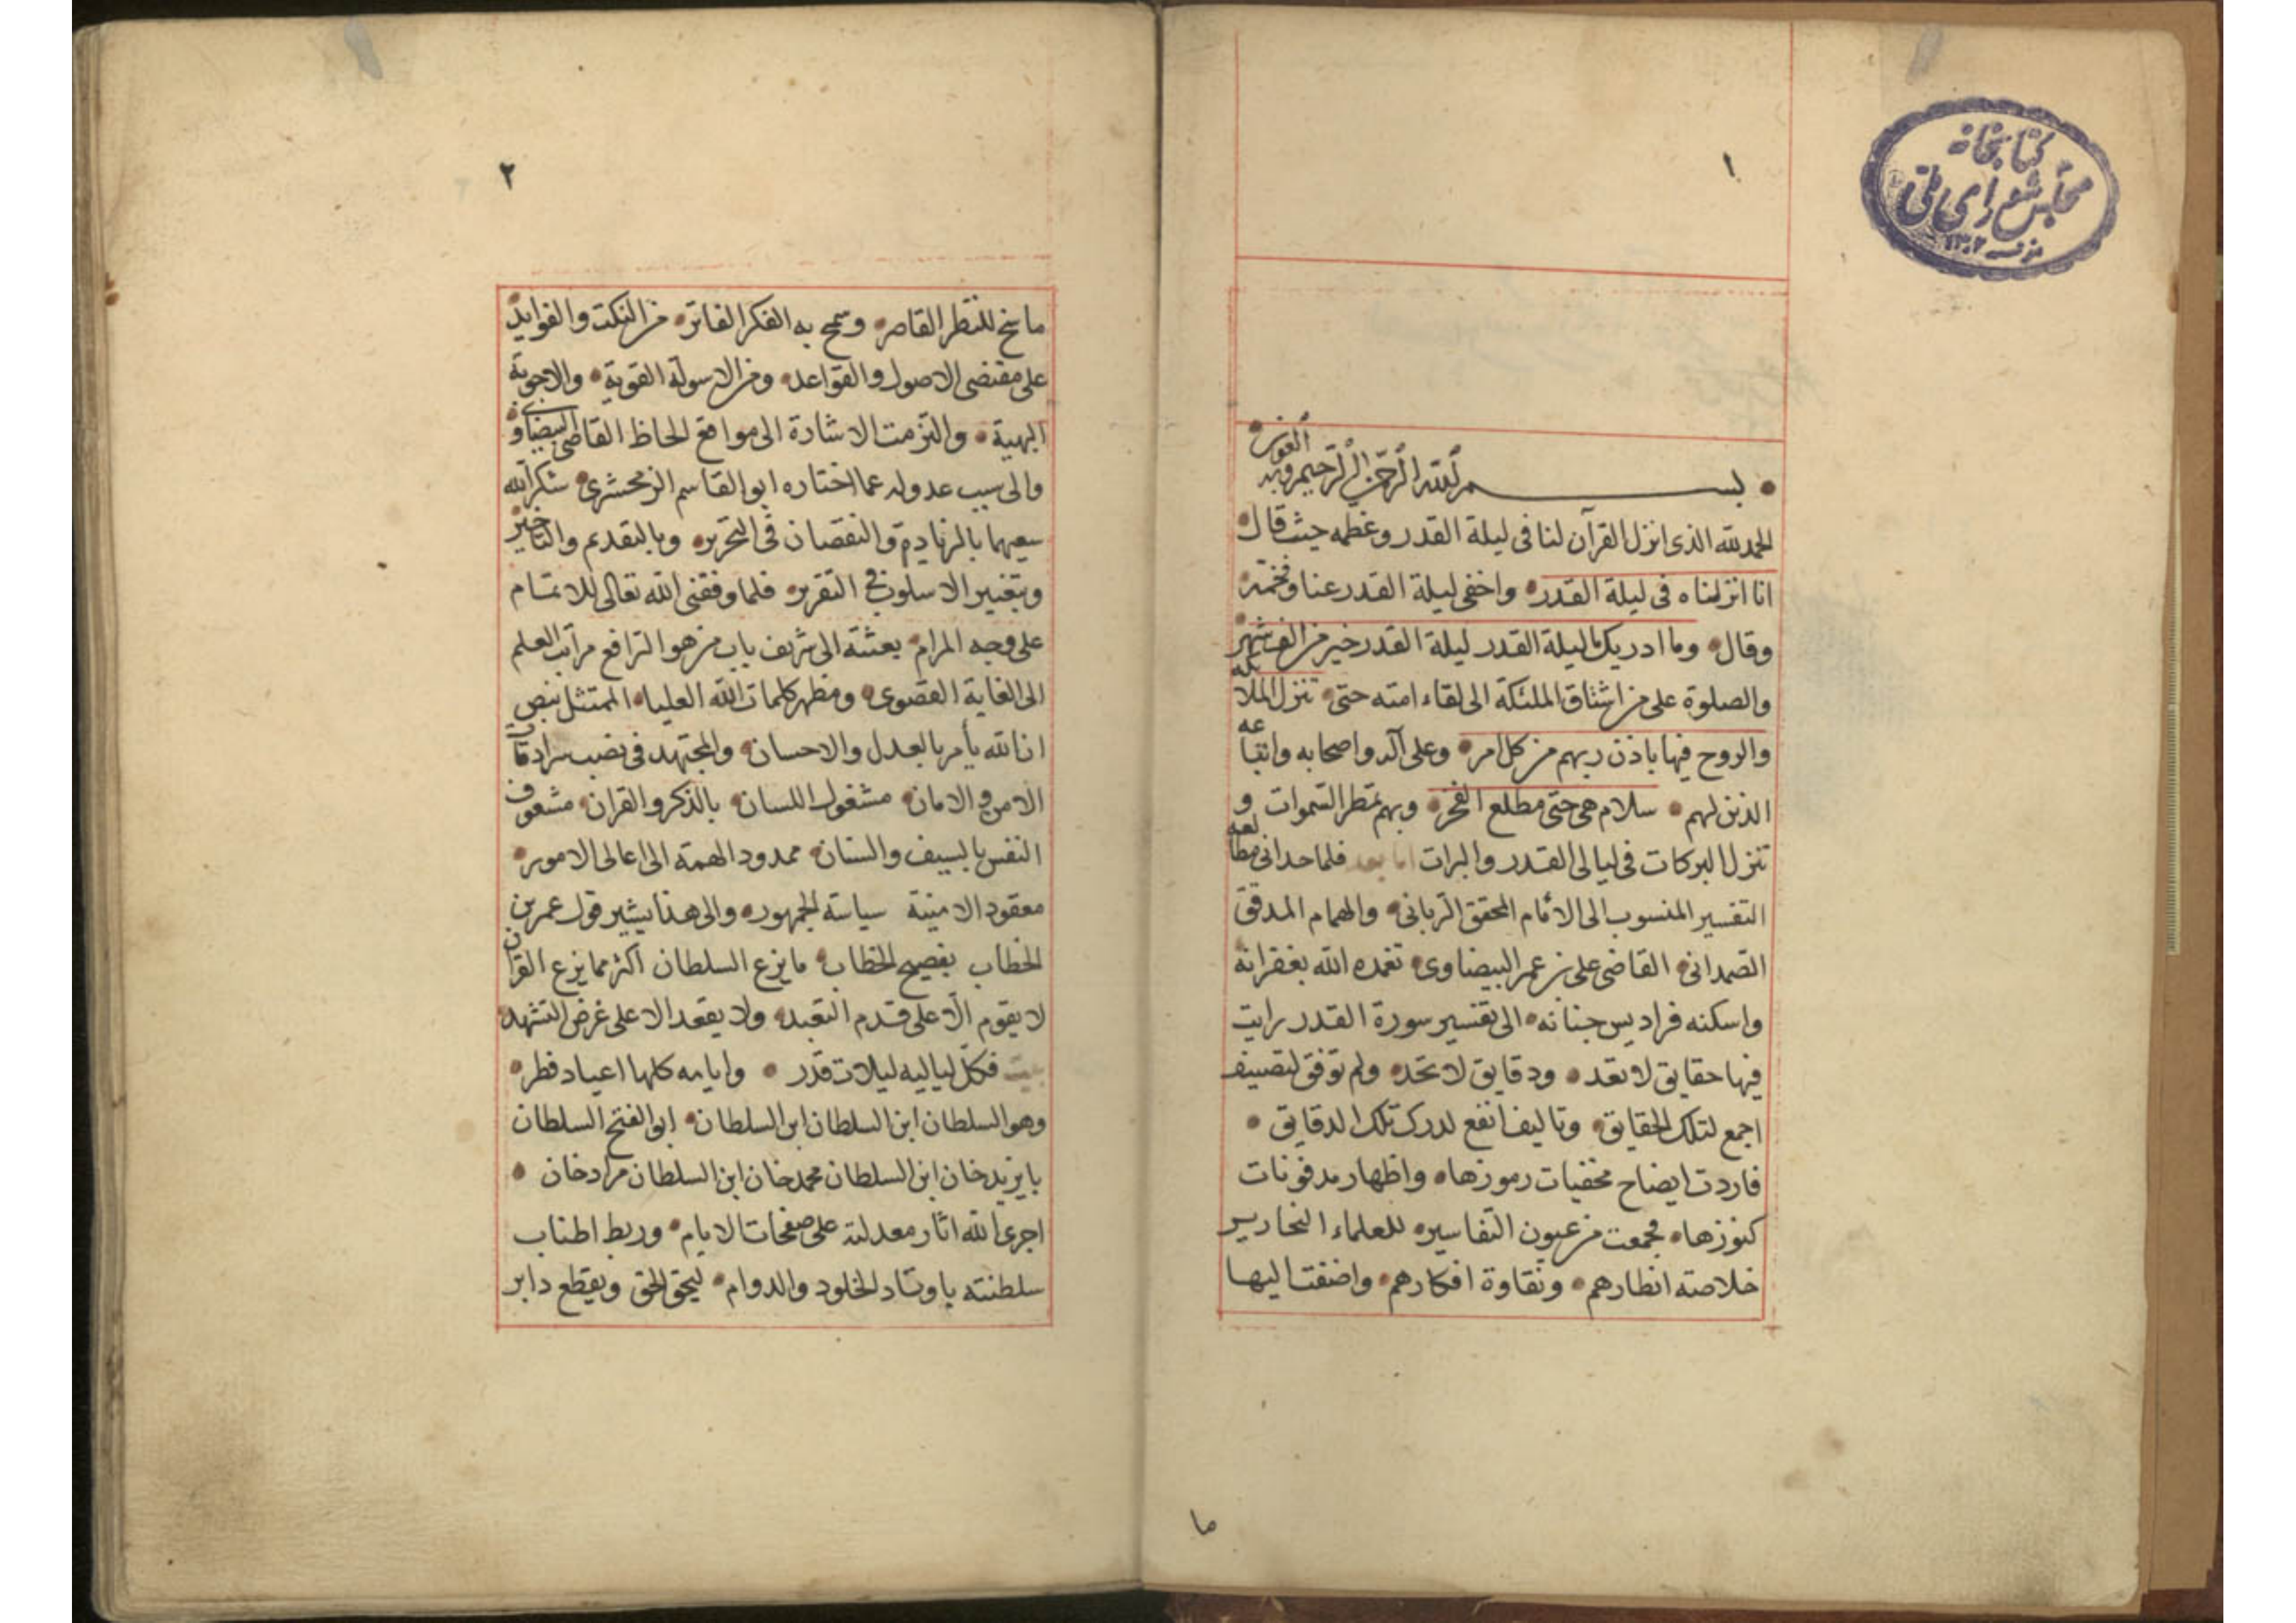 كتابخانه
مجلس شورای ملی
١٣٠٢
١
بسم الله الرحمن الرحيم وبه العون
الحمد لله الذى انزل القرآن لنا فى ليلة القدر وعظمه حيث قال
انا انزلناه فى ليلة القدر واخفى ليلة القدر عنا وفخمه
وقال وما ادريك ما ليلة القدر ليلة القدر خير من الف شهر
والصلوة على من اشتاق الملئكة الى لقاء امته حتى تنزل الملائكه
والروح فيها باذن ربهم من كل امر وعلى آله واصحابه واتباعه
الذين لهم سلام هى حتى مطلع الفجر وبهم تمطر السموات و
تنزل البركات فى ليالى القدر والبرات اما بعد فلما حدانى مطالعه
التفسير المنسوب الى الامام المحقق الربانى والهمام المدقق
الصمدانى القاضى على بن عمر البيضاوى تغمده الله بغفرانه
واسكنه فراديس جنانه الى تفسير سورة القدر رايت
فيها حقايق لا تعد ودقايق لا تحد ولم توفق لتصنيف
اجمع لتلك الحقايق وتاليف انفع لدرك تلك الدقايق
فاردت ايضاح مخفيات رموزها واظهار مدفونات
كنوزها فجمعت من عيون التفاسير للعلماء النحارير
خلاصته انظارهم ونقاوة افكارهم واضفت اليها
ما
٢
ما سنح للنظر القاصر وسمح به الفكر الفاتر من النكت والفوايد
على مقتضى الاصول والقواعد ومن الاسولة القوية والاجوبة
البهية والتزمت الاشارة الى مواقع الحاظ القاضى البيضاوى
والى سبب عدوله عما اختاره ابو القاسم الزمخشرى شكر الله
سعيهما بالزيادة والنقصان فى التحرير وبالتقديم والتاخير
وبتغيير الاسلوب فى التقرير فلما وفقنى الله تعالى للاتمام
على وجه المرام بعثته الى شريف باب من هو الرافع مراتب العلم
الى الغاية القصوى ومظهر كلمات الله العليا الممتثل بنص
ان الله يأمر بالعدل والاحسان والمجتهد فى نصب سرادقات
الامن والامان مشغول اللسان بالذكر والقران مشعوف
النفس بالسيف والسنان ممدود الهمة الى اعالى الامور
معقود الامنية سياسة الجمهور والى هذا يشير قول عمر بن
الخطاب بفصيح الخطاب ما يزع السلطان اكثر مما يزع القران
لا يقوم الا على قدم التعبد ولا يقعد الا على غرض التشهد
بيت فكل لياليه ليلات قدر وايامه كلها اعياد فطر
وهو السلطان ابن السلطان ابن السلطان ابو الفتح السلطان
بايزيد خان ابن السلطان محمد خان ابن السلطان مراد خان
اجرى الله اثار معدلته على صفحات الايام وربط اطناب
سلطنته باوتاد الخلود والدوام ليحق الحق ويقطع دابر